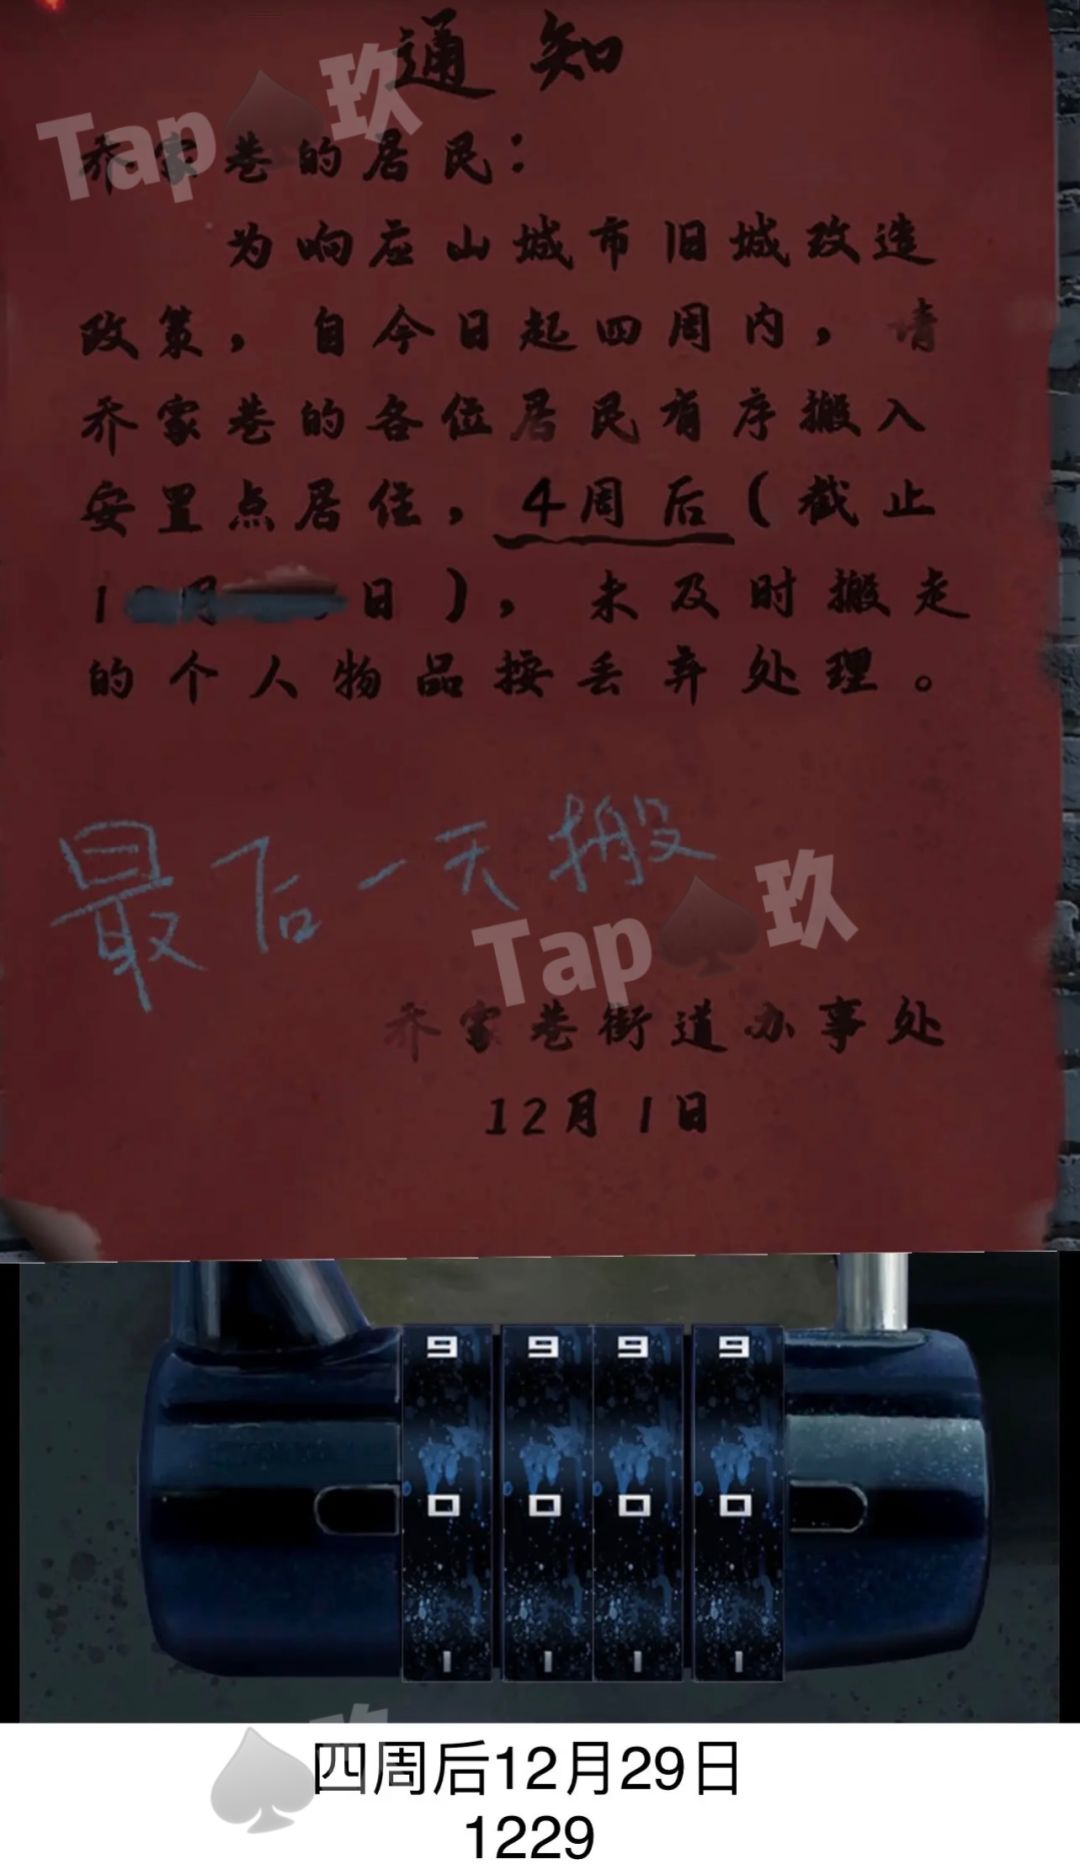 通知
乔家巷的居民：
为响应山城市旧城改造
政策，自今日起四周内，请
乔家巷的各位居民有序搬入
安置点居住，4周后（截止
1 月 日），未及时搬走
的个人物品按丢弃处理。
最后一天搬
乔家巷街道办事处
12月1日
Tap♠玖
Tap♠玖
9 9 9 9
0 0 0 0
1 1 1 1
玖
四周后12月29日
1229